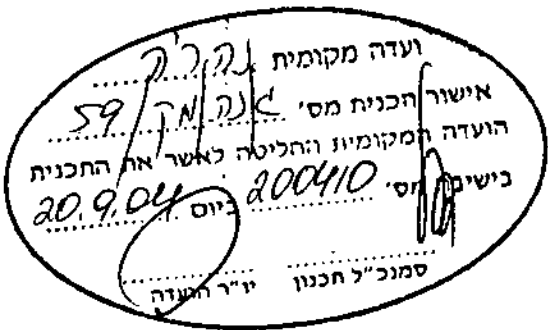 ועדה מקומית נהריה
אישור תכנית מס' ג/נה/מק/59
הועדה המקומית החליטה לאשר את התכנית
בישיבה מס' 200410 ביום 20.9.04
סמנכ"ל תכנון יו"ר הועדה